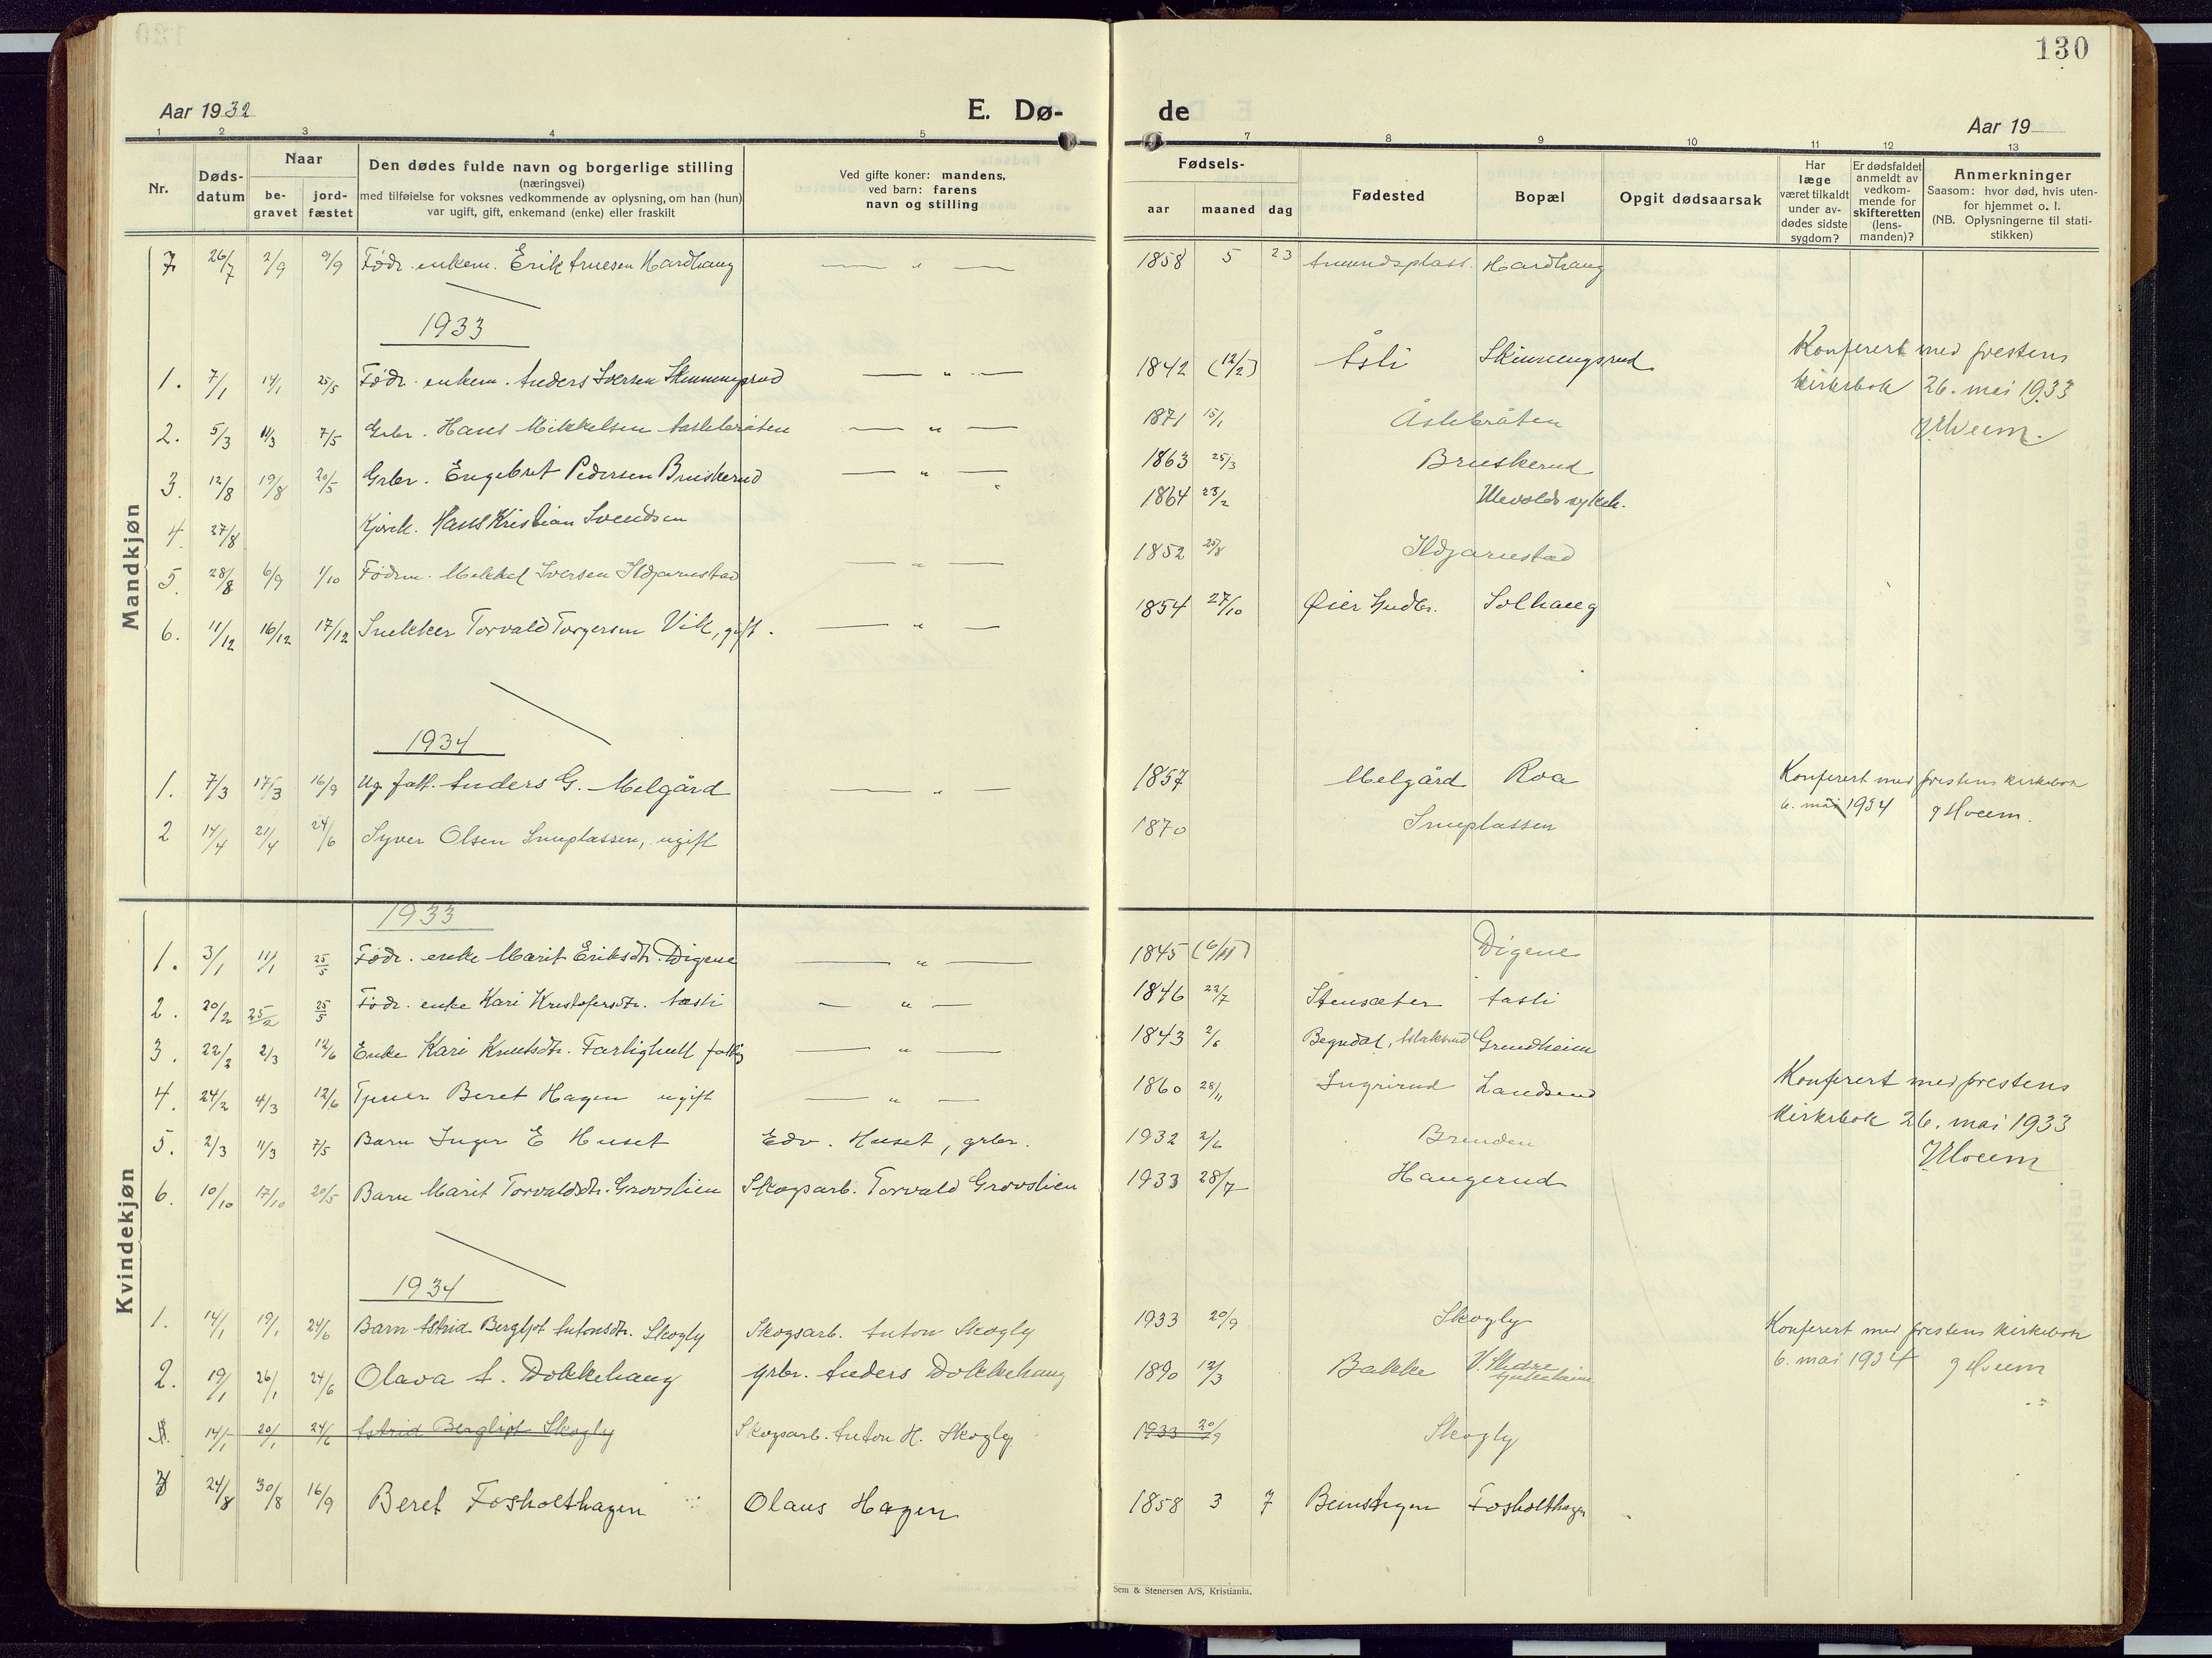 130
Aar 1932
E. Dø-
de
Aar 19
1 2 3 4 5 7 8 9 10 11 12 13
Nr.
Døds-
datum
Naar
be-
gravet
jord-
fæstet
Den dødes fulde navn og borgerlige stilling
(næringsvei)
med tilføielse for voksnes vedkommende av oplysning, om han (hun)
var ugift, gift, enkemand (enke) eller fraskilt
Ved gifte koner: mandens,
ved barn: farens
navn og stilling
Fødsels-
aar
maaned
dag
Fødested
Bopæl
Opgit dødsaarsak
Har
læge
været tilkaldt
under av-
dødes sidste
sygdom?
Er dødsfaldet
anmeldt av
vedkom-
mende for
skifteretten
(lens-
manden)?
Anmerkninger
Saasom: hvor død, hvis uten-
for hjemmet o. l.
(NB. Oplysningerne til stati-
stikken)
Mandkjøn
7. 26/7 2/9 9/9 Födr. enkem. Erik Arnesen Hardhaug — " — 1858 5 23 Amundsplass. Hardhaug
1933
1. 7/1 14/1 25/5 Födr. enkem. Anders Iversen Skinningsrud — " — 1842 (12/2) Åsli Skinningsrud
Konferert med prestens
kirkebok 26. mai 1933
Hveem.
2. 5/3 11/3 7/5 Grbr. Hans Mikkelsen Aaslebråten — " — 1871 15/1 Åslebråten
3. 12/8 19/8 20/5 Grbr. Engebret Pedersen Bruskerud — " — 1863 25/3 Bruskerud
4. 27/8 Hans Kristian Svendsen 1864 23/2 Ulevolds sykeh.
5. 28/8 6/9 1/10 Födrm. Mikkel Iversen Ildjarnstad — " — 1852 25/8 Ildjarnstad
6. 11/12 16/12 17/12 Snekker Torvald Torgersen Vik, gift. — " — 1854 27/10 Øier Gudbr. Solhaug
1934
1. 7/3 17/3 16/9 Ug. fatt. Anders G. Melgård — " — 1857 Melgård Roa
Konferert med prestens kirkebok
6. mai 1934 Hveem.
2 14/4 21/4 24/6 Syver Olsen Smuplassen, ugift 1870 Smuplassen
Kvindekjøn
1933
1. 3/1 11/1 25/5 Födr. enke Marit Eriksdtr. Digene — " — 1845 (6/11) Digene
2. 20/2 25/2 25/5 Födr. enke Kari Kristofersdtr. Aasli — " — 1846 22/7 Stensæter Aasli
3. 22/2 2/3 12/6 Enke Kari Knutsdtr. Farlighull fattig — " — 1843 2/6 Begndal, Islaksrud Grundheim
4. 24/2 4/3 12/6 Beret Hagen ugift — " — 1860 28/11 Ingrirud Landsend
Konferert med prestens
kirkebok 26. mai 1933
Hveem
5. 2/3 11/3 7/5 Barn Inger E Huset Edv. Huset, grbr. 1932 2/6 Brenden
6. 10/10 17/10 20/5 Barn Marit Torvaldsdtr. Grovslien Skogsarb. Torvald Grovslien 1933 28/7 Haugerud
1934
1. 14/1 19/1 24/6 Barn Astrid Bergljot Antonsdtr. Skogly Skogsarb. Anton Skogly 1933 20/9 Skogly
Konferert med prestens kirkebok
6. mai 1934 Hveem
2. 19/1 26/1 24/6 Olava A. Dokkehaug grbr. Anders Dokkehaug 1890 12/3 Bakke V. Slidre
14/1 20/1 24/6 Astrid Bergliot Skogly Skogsarb. Anton H. Skogly 1933 20/9 Skogly
3 24/8 30/8 16/9 Beret Fosholthagen Olaus Hagen 1858 3 7 Fosholthagen
Sem & Stenersen A/S, Kristiania.